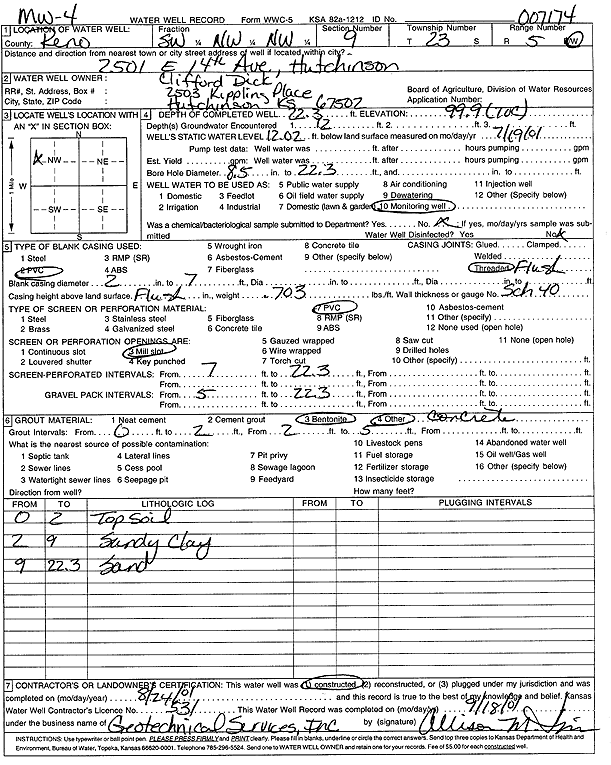 MW-4 WATER WELL RECORD Form WWC-5 KSA 82a-1212 ID No. 007174
1 LOCATION OF WATER WELL: Fraction Section Number Township Number Range Number
County: Reno SW ¼ NW ¼ NW ¼ 9 T 23 S R 5 E/W
Distance and direction from nearest town or city street address of well if located within city?
2501 E 14th Ave, Hutchinson
2 WATER WELL OWNER: Clifford Dick
RR#, St. Address, Box # : 2503 Kippling Place Board of Agriculture, Division of Water Resources
City, State, ZIP Code : Hutchinson KS 67502 Application Number:
3 LOCATE WELL'S LOCATION WITH AN "X" IN SECTION BOX:
N
X NW NE
W E
SW SE
S
1 Mile
4 DEPTH OF COMPLETED WELL 22.3 ft. ELEVATION: 99.9 (TOC)
Depth(s) Groundwater Encountered 1. 12 ft. 2. ft. 3. ft.
WELL'S STATIC WATER LEVEL 12.02 ft. below land surface measured on mo/day/yr 7/19/01
Pump test data: Well water was ft. after hours pumping gpm
Est. Yield gpm: Well water was ft. after hours pumping gpm
Bore Hole Diameter 8.5 in. to 22.3 ft., and in. to ft.
WELL WATER TO BE USED AS: 5 Public water supply 8 Air conditioning 11 Injection well
1 Domestic 3 Feedlot 6 Oil field water supply 9 Dewatering 12 Other (Specify below)
2 Irrigation 4 Industrial 7 Domestic (lawn & garden) 10 Monitoring well
Was a chemical/bacteriological sample submitted to Department? Yes No X ; If yes, mo/day/yrs sample was submitted Water Well Disinfected? Yes No X
5 TYPE OF BLANK CASING USED: 5 Wrought iron 8 Concrete tile CASING JOINTS: Glued Clamped
1 Steel 3 RMP (SR) 6 Asbestos-Cement 9 Other (specify below) Welded
2 PVC 4 ABS 7 Fiberglass Threaded Flush
Blank casing diameter 2 in. to 7 ft., Dia in. to ft., Dia in. to ft.
Casing height above land surface Flush in., weight .703 lbs./ft. Wall thickness or gauge No. Sch 40
TYPE OF SCREEN OR PERFORATION MATERIAL: 7 PVC 10 Asbestos-cement
1 Steel 3 Stainless steel 5 Fiberglass 8 RMP (SR) 11 Other (specify)
2 Brass 4 Galvanized steel 6 Concrete tile 9 ABS 12 None used (open hole)
SCREEN OR PERFORATION OPENINGS ARE: 5 Gauzed wrapped 8 Saw cut 11 None (open hole)
1 Continuous slot 3 Mill slot 6 Wire wrapped 9 Drilled holes
2 Louvered shutter 4 Key punched 7 Torch cut 10 Other (specify) ft.
SCREEN-PERFORATED INTERVALS: From 7 ft. to 22.3 ft., From ft. to ft.
From ft. to ft., From ft. to ft.
GRAVEL PACK INTERVALS: From 5 ft. to 22.3 ft., From ft. to ft.
From ft. to ft., From ft. to ft.
6 GROUT MATERIAL: 1 Neat cement 2 Cement grout 3 Bentonite 4 Other Concrete
Grout Intervals: From 0 ft. to 2 ft., From 2 ft. to 5 ft., From ft. to ft.
What is the nearest source of possible contamination: 10 Livestock pens 14 Abandoned water well
1 Septic tank 4 Lateral lines 7 Pit privy 11 Fuel storage 15 Oil well/Gas well
2 Sewer lines 5 Cess pool 8 Sewage lagoon 12 Fertilizer storage 16 Other (specify below)
3 Watertight sewer lines 6 Seepage pit 9 Feedyard 13 Insecticide storage
Direction from well? How many feet?
FROM TO LITHOLOGIC LOG FROM TO PLUGGING INTERVALS
0 2 Top Soil
2 9 Sandy Clay
9 22.3 Sand
7 CONTRACTOR'S OR LANDOWNER'S CERTIFICATION: This water well was (1) constructed, (2) reconstructed, or (3) plugged under my jurisdiction and was
completed on (mo/day/year) 8/24/01 and this record is true to the best of my knowledge and belief. Kansas
Water Well Contractor's Licence No. 531 This Water Well Record was completed on (mo/day/yr) 9/18/01
under the business name of Geotechnical Services, Inc by (signature) Allison M.
INSTRUCTIONS: Use typewriter or ball point pen. PLEASE PRESS FIRMLY and PRINT clearly. Please fill in blanks, underline or circle the correct answers. Send top three copies to Kansas Department of Health and
Environment, Bureau of Water, Topeka, Kansas 66620-0001. Telephone 785-296-5524. Send one to WATER WELL OWNER and retain one for your records. Fee of $5.00 for each constructed well.